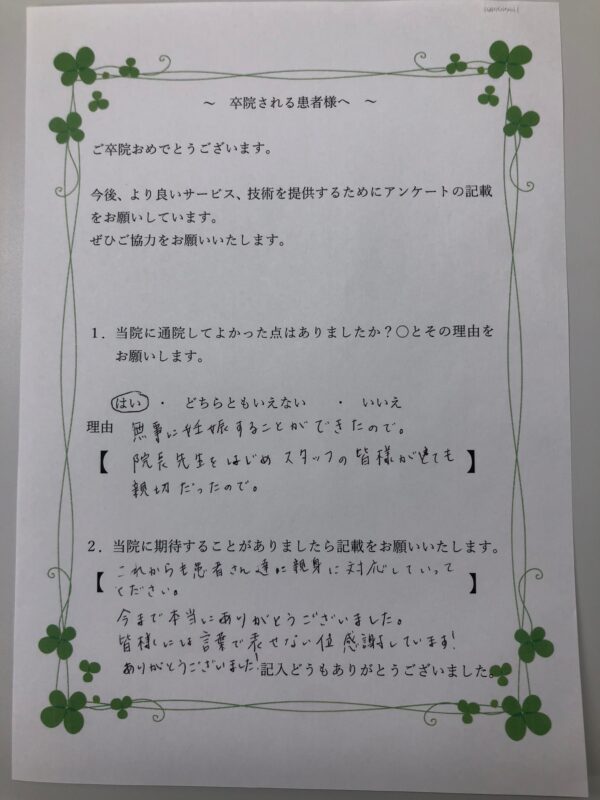 ～ 卒院される患者様へ ～
ご卒院おめでとうございます。
今後、より良いサービス、技術を提供するためにアンケートの記載
をお願いしています。
ぜひご協力をお願いいたします。
１．当院に通院してよかった点はありましたか？○とその理由を
お願いします。
はい ・ どちらともいえない ・ いいえ
理由 無事に妊娠することができたので。
【 院長先生をはじめスタッフの皆様がとても 】
親切だったので。
２．当院に期待することがありましたら記載をお願いいたします。
【 これからも患者さん達に親身に対応していって 】
ください。
今まで本当にありがとうございました。
皆様には言葉で表せない位感謝しています!
ありがとうございました! 記入どうもありがとうございました。